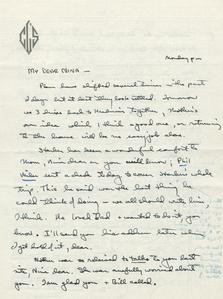 Monday p—
MY DEAR NINA —
Plans have shifted several times in the past
2 days, but at last they look settled. Tomorrow
we 3 drive back to together, Mother's
own idea which I think a good one, as returning
to the house will be no easy job alone.
has been a wonderful comfort to
Mom, Nina dear as you well know; Phil
sent a check today to cover whole
trip. This he said was the last thing he
could think of doing — we all should write him,
I think. He loved Dad & wanted to do it you
know. I'll send you his address later when
I get hold of it, dear.
Mother was so relieved to talk to you last
nite, Nina dear. She was awfully worried about
you. I am glad you & Bill called.